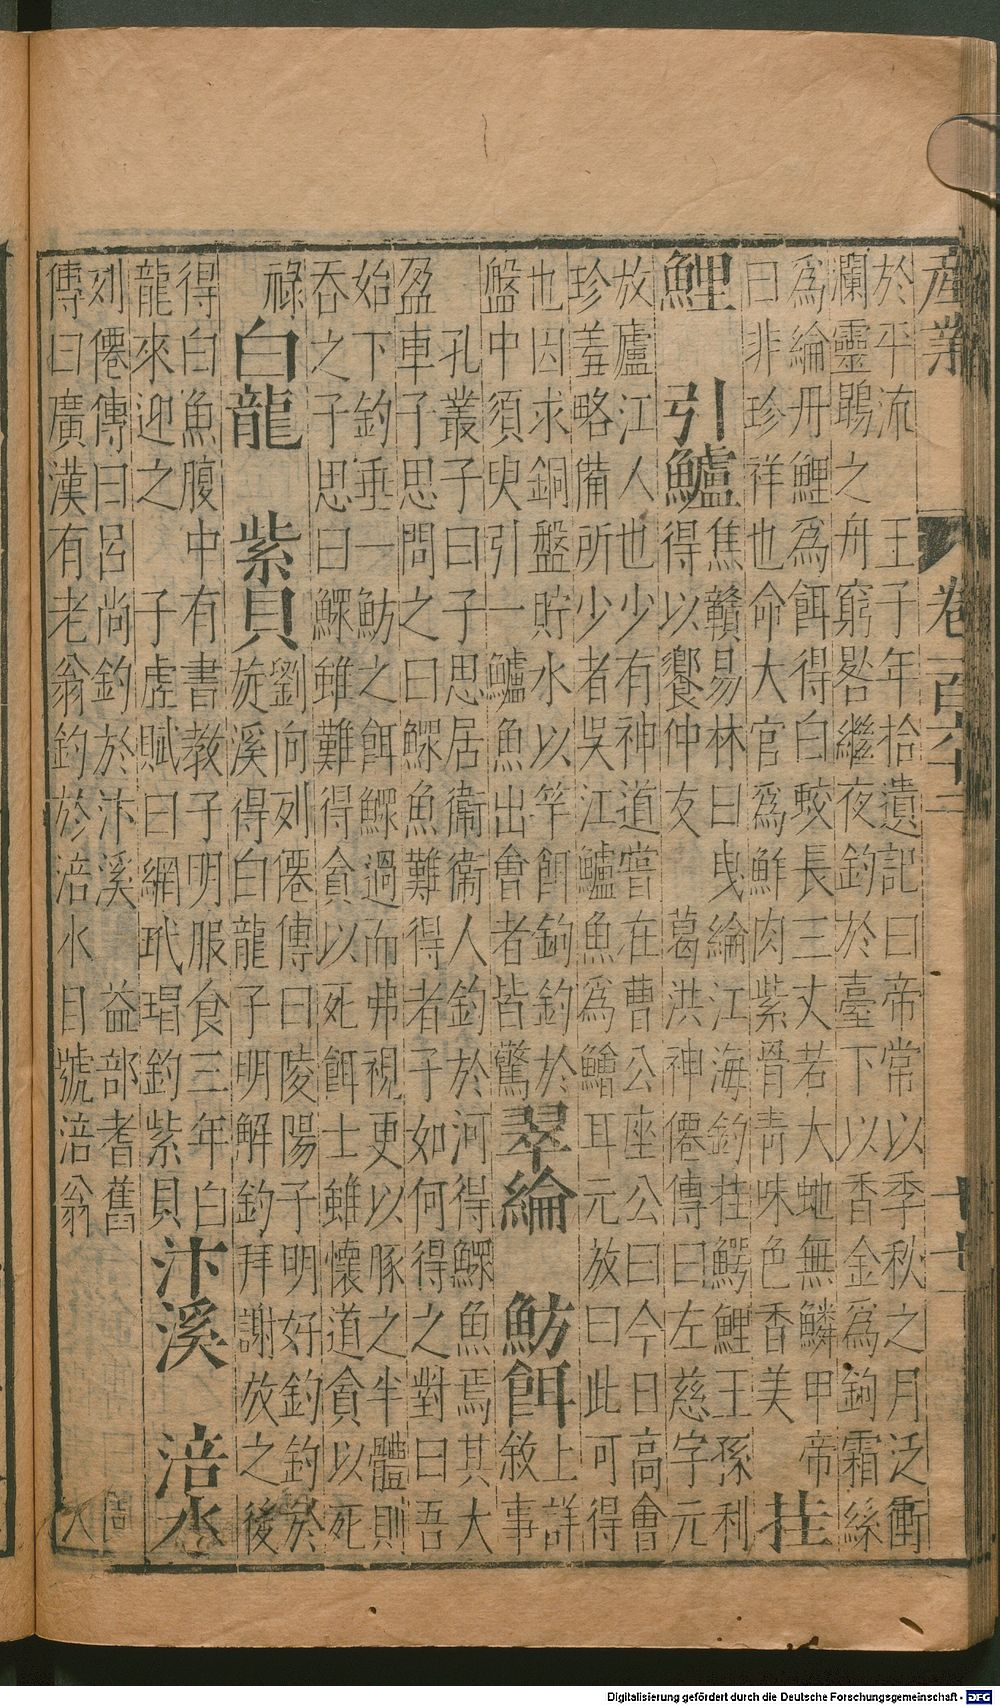 產業 卷一百六十二 十七
於平流 王子年拾遺記曰帝常以季秋之月泛衝
瀾靈鷁之舟窮晷繼夜釣於臺下以香金為鉤霜絲
為綸丹鯉為餌得白蛟長三丈若大虵無鱗甲帝
曰非珍祥也命大官為鮮肉紫骨青味色香美
挂
鯉 引鱸
焦贛易林曰曳綸江海釣挂鰐鯉王孫利
得以饗仲友 葛洪神僊傳曰左慈字元
放廬江人也少有神道嘗在曹公座公曰今日高會
珍羞略備所少者吳江鱸魚為鱠耳元放曰此可得
也因求銅盤貯水以竿餌鉤釣於
盤中須臾引一鱸魚出會者皆驚
翠綸 魴餌
上詳
敘事
孔叢子曰子思居衛衛人釣於河得鰥魚焉其大
盈車子思問之曰鰥魚難得者子如何得之對曰吾
始下釣垂一魴之餌鰥過而弗視更以豚之半體則
吞之子思曰鰥雖難得貪以死餌士雖懷道貪以死
祿
白龍 紫貝
劉向列僊傳曰陵陽子明好釣釣於
旋溪得白龍子明解釣拜謝放之後
得白魚腹中有書教子明服食三年白
龍來迎之 子虛賦曰網玳瑁釣紫貝
汴溪 涪水
列僊傳曰呂尚釣於汴溪 益部耆舊
傳曰廣漢有老翁釣於涪水自號涪翁
Digitalisierung gefördert durch die Deutsche Forschungsgemeinschaft - DFG